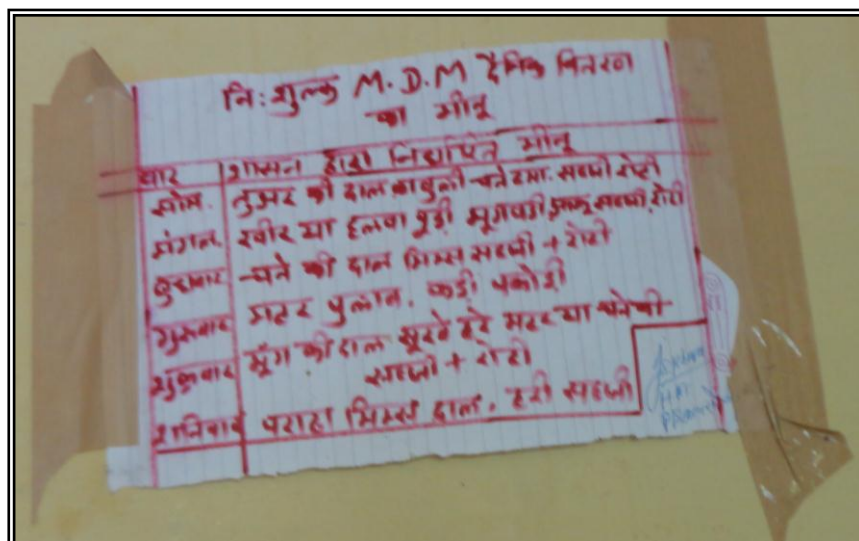 नि:शुल्क M.D.M दैनिक वितरण
का मीनू
वार शासन द्वारा निर्धारित मीनू
सोम. तुअर की दाल काबुली चने टमा. सब्जी रोटी
मंगल. खीर या हलवा पूड़ी मूंगबड़ी आलू सब्जी, रोटी
बुधवार चने की दाल मिक्स सब्जी + रोटी
गुरुवार मटर पुलाव. कढ़ी पकोड़ी
शुक्रवार मूंग की दाल सूखे हरे मटर या चने की
सब्जी + रोटी
शनिवार पराठा मिक्स दाल. हरी सब्जी